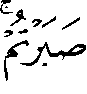 صَبَرْتُمْ ۚ